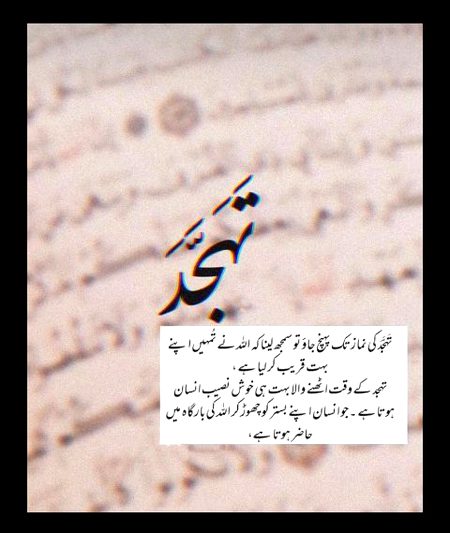 تَہَجَّدَ
تَہَجَّد کی نماز تک پہنچ جاؤ تو سمجھ لینا کہ اللہ نے تُمہیں اپنے
بہت قریب کر لیا ہے ،
تہجد کے وقت اٹھنے والا بہت ہی خوش نصیب انسان
ہوتا ہے ۔ جو انسان اپنے بستر کو چھوڑ کر اللہ کی بارگاہ میں
حاضر ہوتا ہے ،